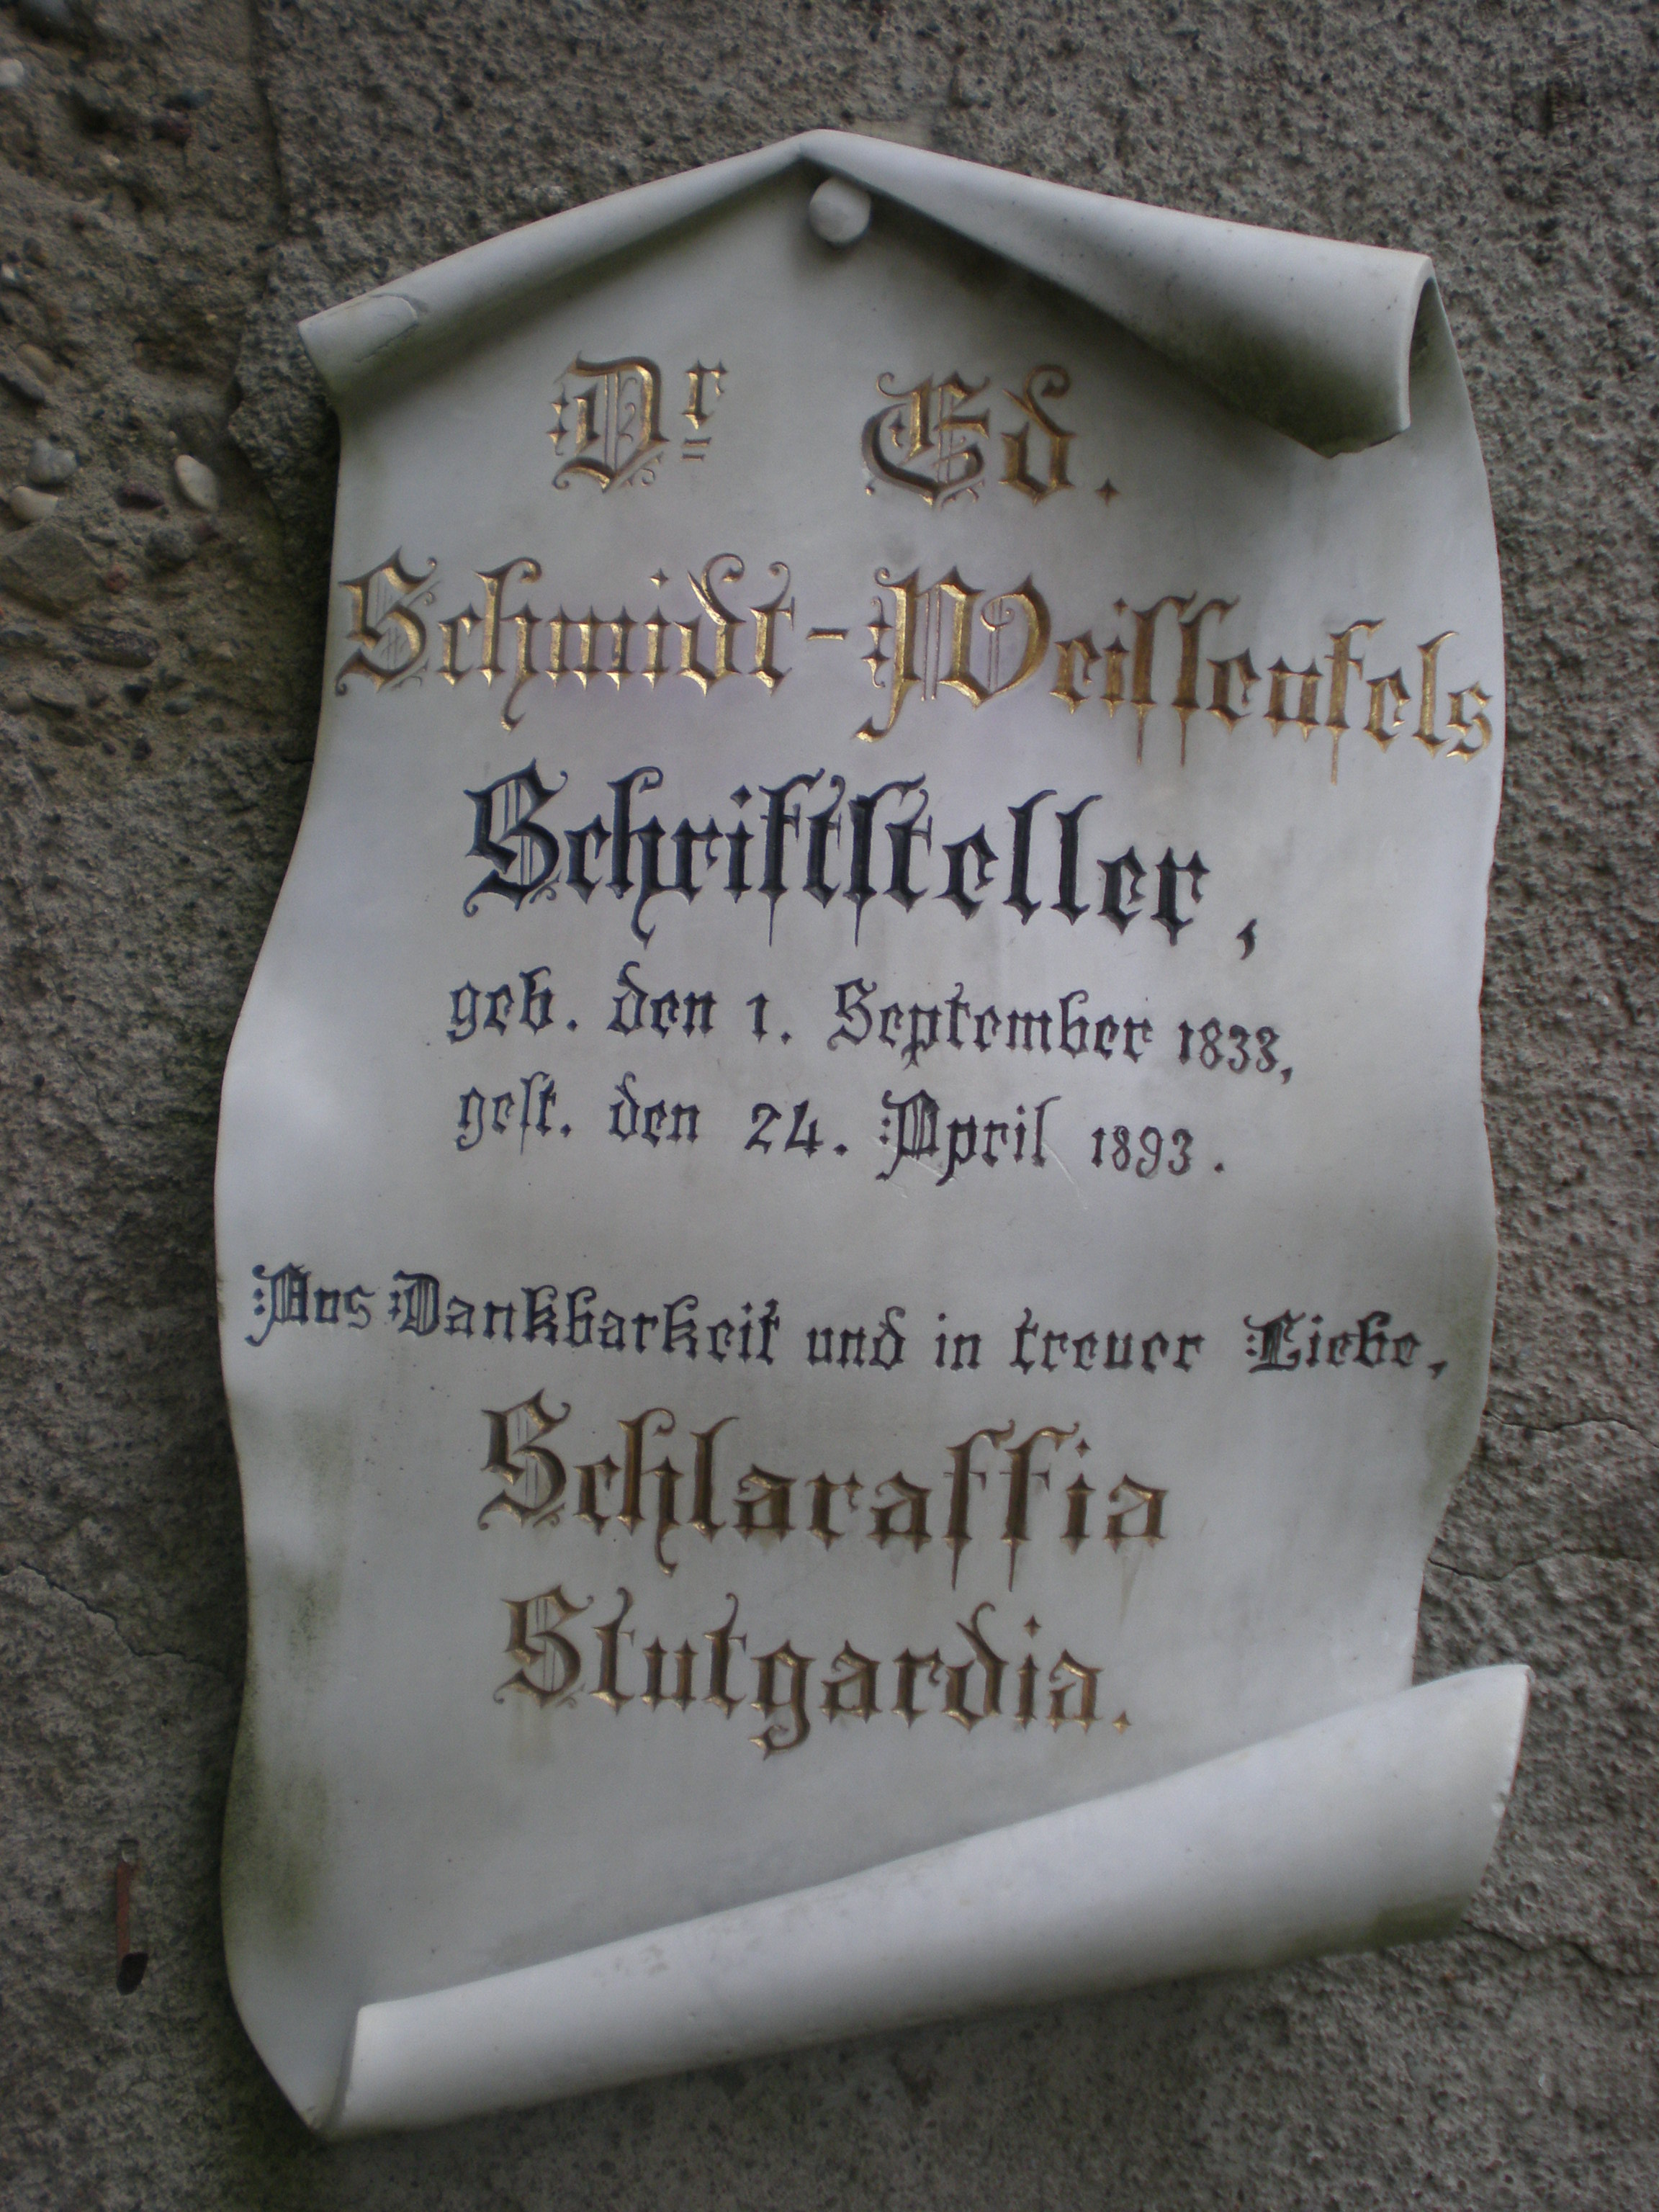 Dr Ed.
Schmidt-Weiſſenfels
Schriftſteller,
geb. den 1. September 1833,
geſt. den 24. April 1893.
Aus Dankbarkeit und in treuer Liebe,
Schlaraffia
Stutgardia.